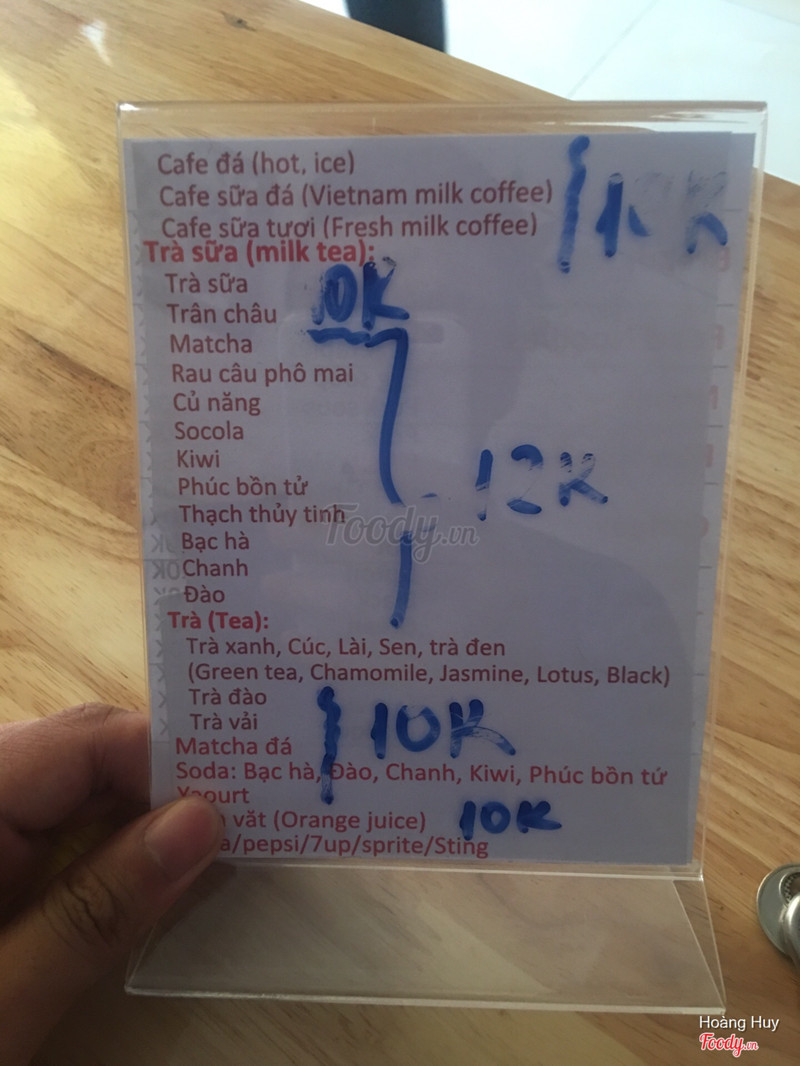 Cafe đá (hot, ice)
Cafe sữa đá (Vietnam milk coffee)
Cafe sữa tươi (Fresh milk coffee)
Trà sữa (milk tea):
Trà sữa
10K
Trân châu
Matcha
Rau câu phô mai
Củ năng
Socola
Kiwi
12K
Phúc bồn tử
Thạch thủy tinh
Foody.vn
Bạc hà
Chanh
Đào
Trà (Tea):
Trà xanh, Cúc, Lài, Sen, trà đen
(Green tea, Chamomile, Jasmine, Lotus, Black)
Trà đào
Trà vải
10K
Matcha đá
Soda: Bạc hà, Đào, Chanh, Kiwi, Phúc bồn tứ
Yaourt
văt (Orange juice) 10K
/pepsi/7up/sprite/Sting
Hoàng Huy
Foody.vn